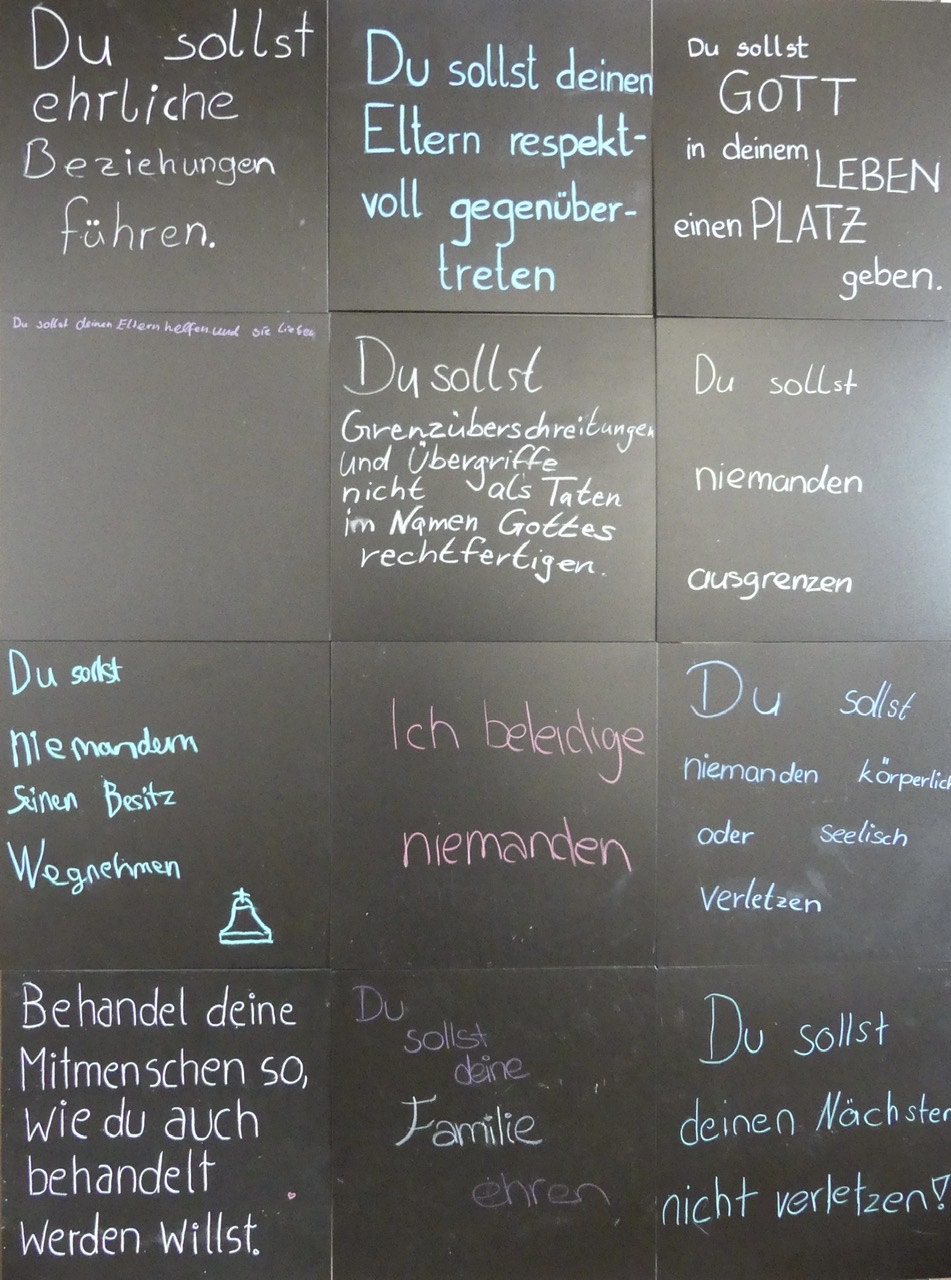 Du sollst
ehrliche
Beziehungen
führen.
Du sollst deinen
Eltern respekt-
voll gegenüber-
treten
Du sollst
GOTT
in deinem LEBEN
einen PLATZ
geben.
Du sollst deinen Eltern helfen und sie lieben
Du sollst
Grenzüberschreitungen
und Übergriffe
nicht als Taten
im Namen Gottes
rechtfertigen.
Du sollst
niemanden
ausgrenzen
Du sollst
Niemandem
Seinen Besitz
Wegnehmen
Ich beleidige
niemanden
Du sollst
niemanden körperlich
oder seelisch
verletzen
Behandel deine
Mitmenschen so,
wie du auch
behandelt
werden willst.
Du
sollst
deine
Familie
ehren
Du sollst
deinen Nächsten
nicht verletzen!